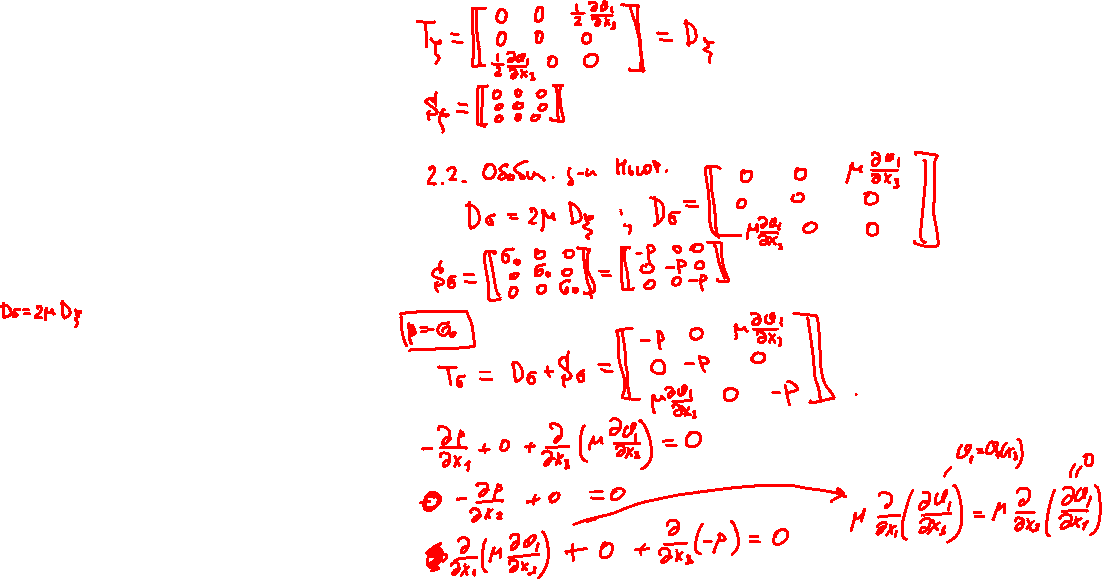 T_ξ = [0 0 ½ ∂υ₁/∂x₃; 0 0 0; ½ ∂υ₁/∂x₃ 0 0] = D_ξ
$_ξ = [0 0 0; 0 0 0; 0 0 0]
2.2. Обобщ. з-н Ньют.
D_σ = 2μ D_ξ ; D_σ = [0 0 μ ∂υ₁/∂x₃; 0 0 0; μ ∂υ₁/∂x₃ 0 0]
$_σ = [σ₀ 0 0; 0 σ₀ 0; 0 0 σ₀] = [-p 0 0; 0 -p 0; 0 0 -p]
D_σ = 2μ D_ξ
p = -σ₀
T_σ = D_σ + $_σ = [-p 0 μ ∂υ₁/∂x₃; 0 -p 0; μ ∂υ₁/∂x₃ 0 -p] .
-∂p/∂x₁ + 0 + ∂/∂x₃ (μ ∂υ₁/∂x₃) = 0
-∂p/∂x₂ + 0 = 0
∂/∂x₁ (μ ∂υ₁/∂x₃) + 0 + ∂/∂x₃ (-p) = 0
υ₁ = υ₁(x₃)
μ ∂/∂x₁ (∂υ₁/∂x₃) = μ ∂/∂x₃ (∂υ₁/∂x₁) = 0